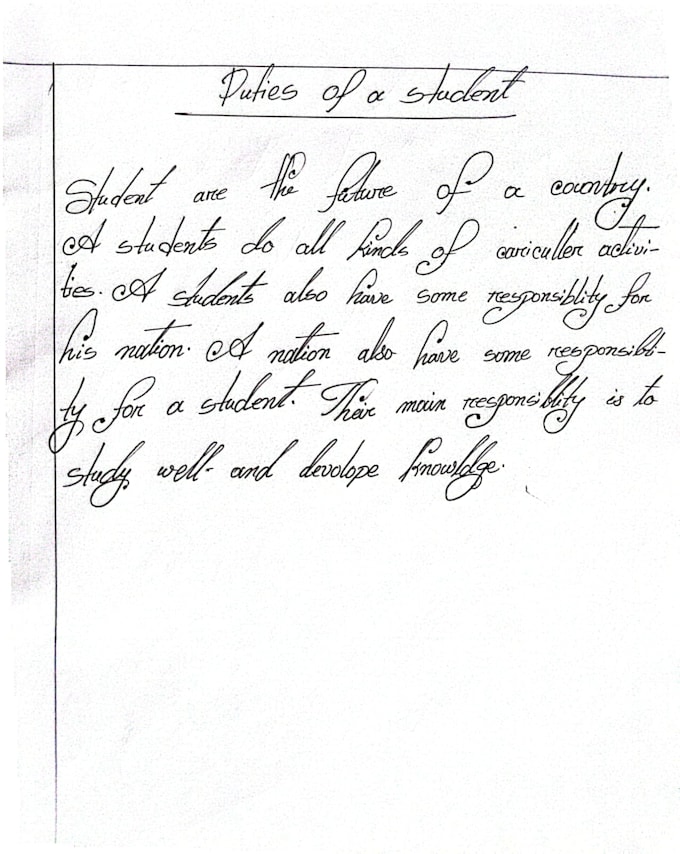 Duties of a student
Student are the future of a country.
A students do all kinds of cariculler activi-
ties. A students also have some responsiblity for
his nation. A nation also have some responsibli-
ty for a student. Their main responsiblity is to
study well- and devolope knowldge.